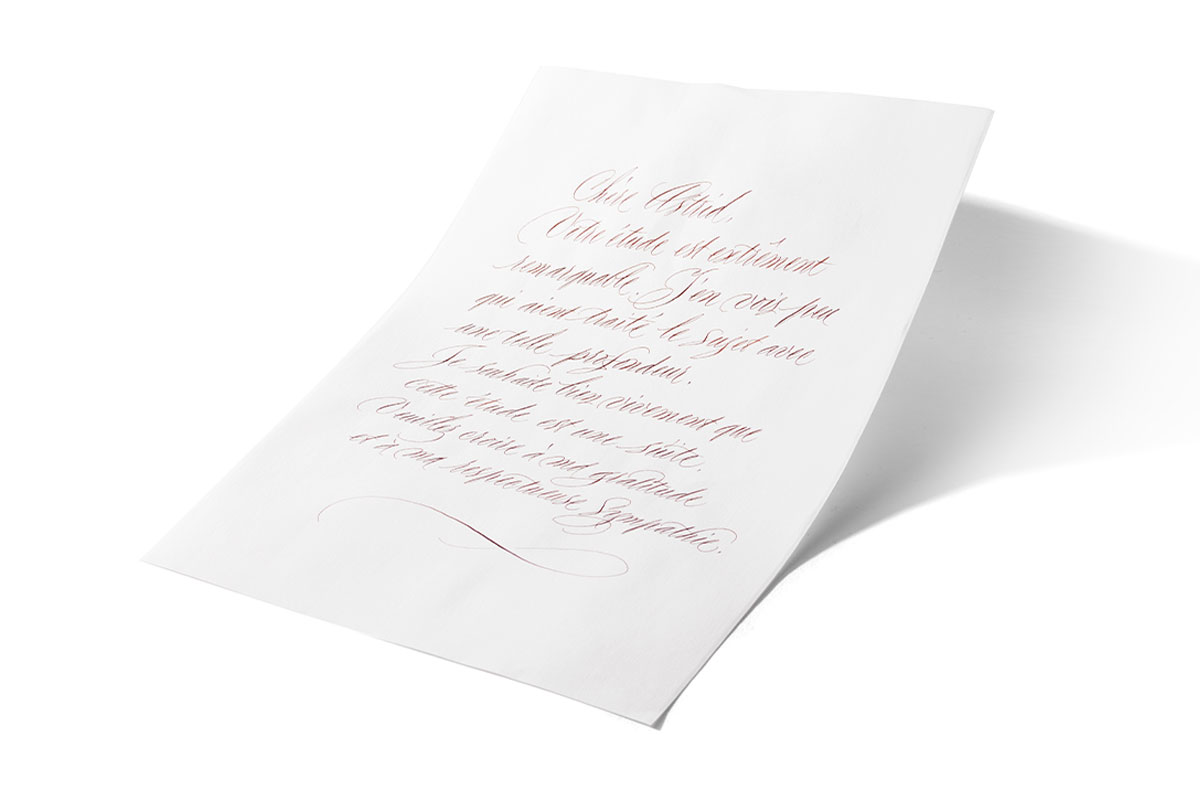 Chère Astrid,
Votre étude est extrêment
remarquable. J'en vois peu
qui aient traité le sujet avec
une telle profondeur.
Je souhaite bien vivement que
cette étude est une suite.
Veuillez croire à ma gratitude
et à ma respectueuse sympathie.